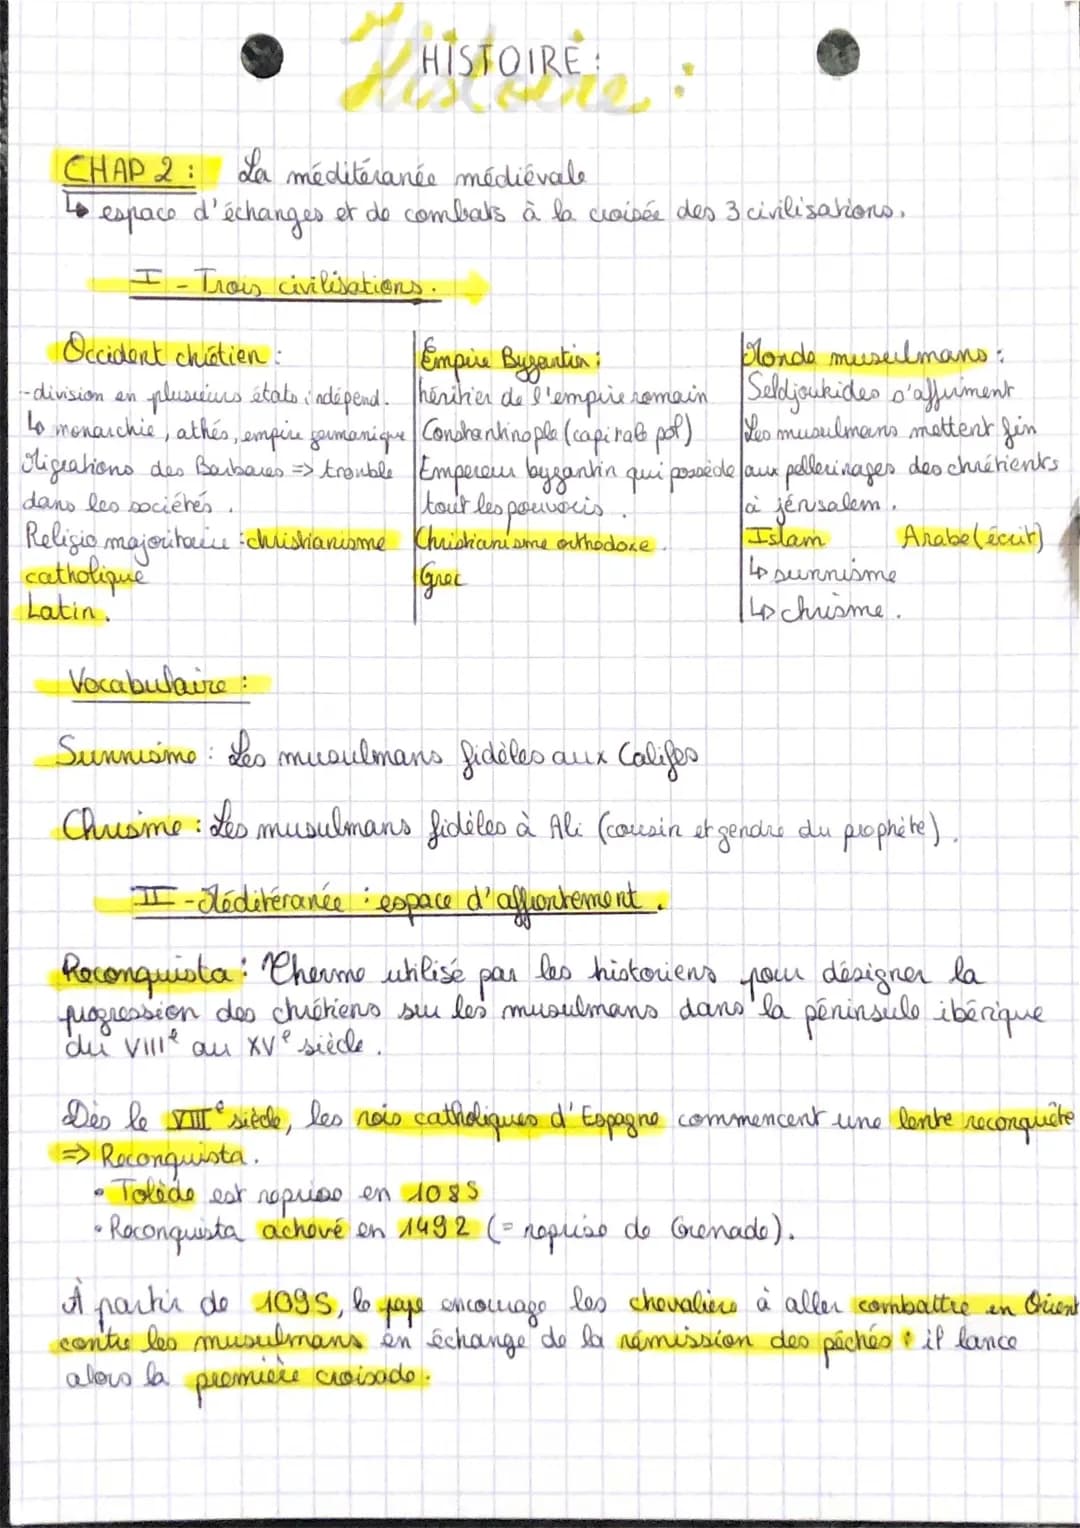 Histoire :
HISTOIRE :
CHAP 2 : La méditéranée médiévale
↳ espace d'échanges et de combats à la croisée des 3 civilisations.
I - Trois civilisations.
Occident chrétien :
-division en plusieurs états indépend.
↳ monarchie, athés, empire germanique
Migrations des Barbares => trouble
dans les sociétés.
Religio majoritaire : christianisme
catholique
Latin.
Empire Byzantin :
héritier de l'empire romain
Constantinople (capitale pol)
Empereur byzantin qui possède
tout les pouvoirs.
Christianisme orthodoxe.
Grec
Monde musulmans :
Seldjoukides s'affirment
Les musulmans mettent fin
aux pellerinages des chrétients
à jérusalem.
Islam Arabe (écrit)
↳ sunnisme
↳ chrisme.
Vocabulaire :
Sunnisme : Les musulmans fidèles aux Califes
Chrisime : Les musulmans fidèles à Ali (cousin et gendre du prophète).
II - Méditéranée : espace d'affrontement.
Reconquista : Therme utilisé par les historiens pour désigner la
progression des chrétiens sur les musulmans dans la péninsule ibérique
du VIIIe au XVe siècle.
Dès le VIIIe siècle, les rois catholiques d'Espagne commencent une lente reconquête
=> Reconquista.
• Tolède est reprise en 1085
• Reconquista achevé en 1492 (= reprise de Grenade).
À partir de 1095, le pape encourage les chevaliers à aller combattre en Orient
contre les musulmans en échange de la rémission des péchés : il lance
alors la première croisade.